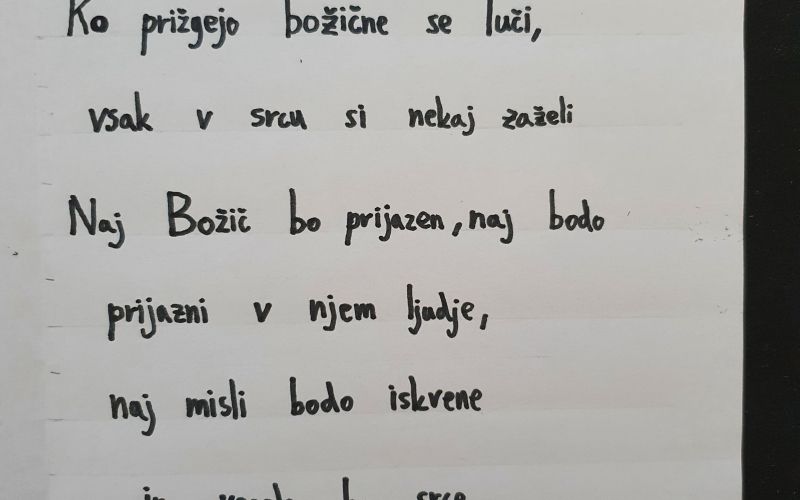 Ko prižgejo božične se luči,
vsak v srcu si nekaj zaželi
Naj Božič bo prijazen, naj bodo
prijazni v njem ljudje,
naj misli bodo iskvene
in srce